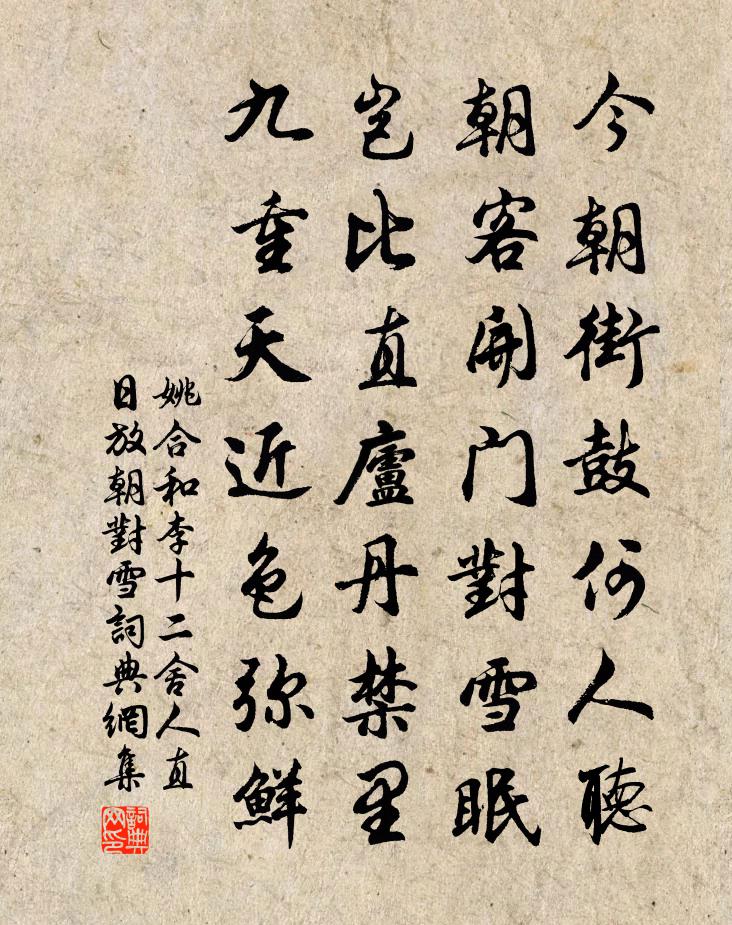 今朝街鼓何人聽
朝客開门對雪眠
豈比直廬丹禁里
九重天近色弥鮮
姚合和李十二舍人直
日放朝對雪詞典網集
詞典
网印